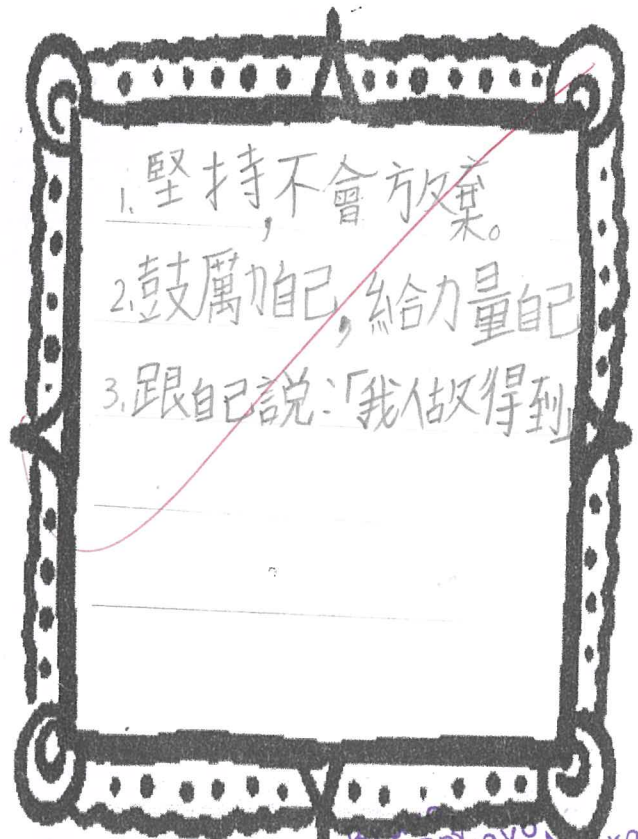 1.堅持,不會放棄。
2.鼓厲力自己,給力量自己
3.跟自己説:「我做得到」